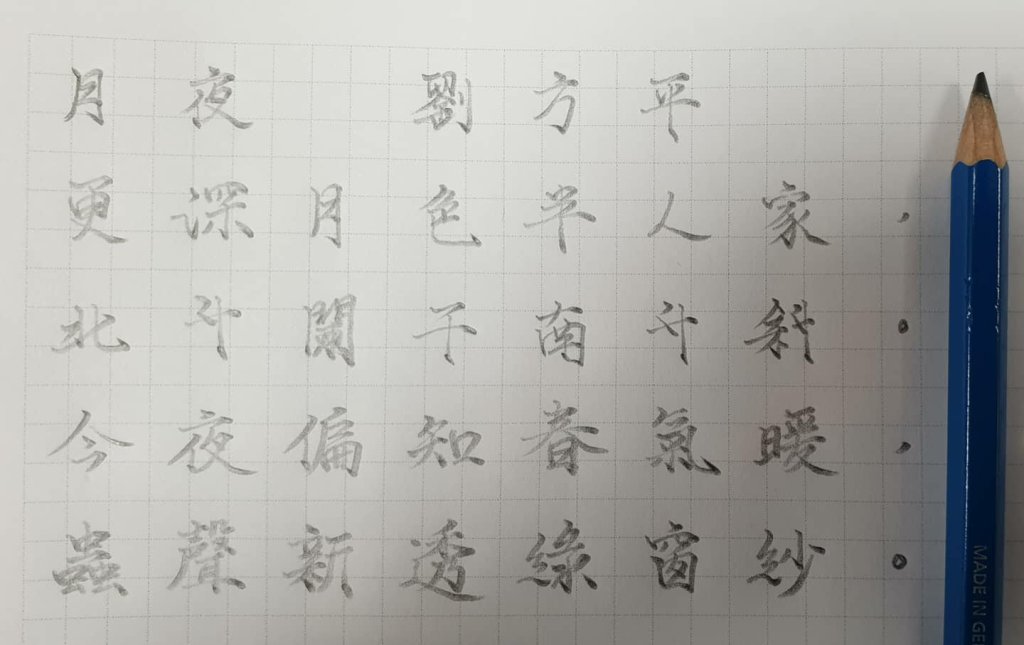 月夜 劉方平
更深月色半人家，
北斗闌干南斗斜。
今夜偏知春氣暖，
蟲聲新透綠窗紗。
MADE IN GE